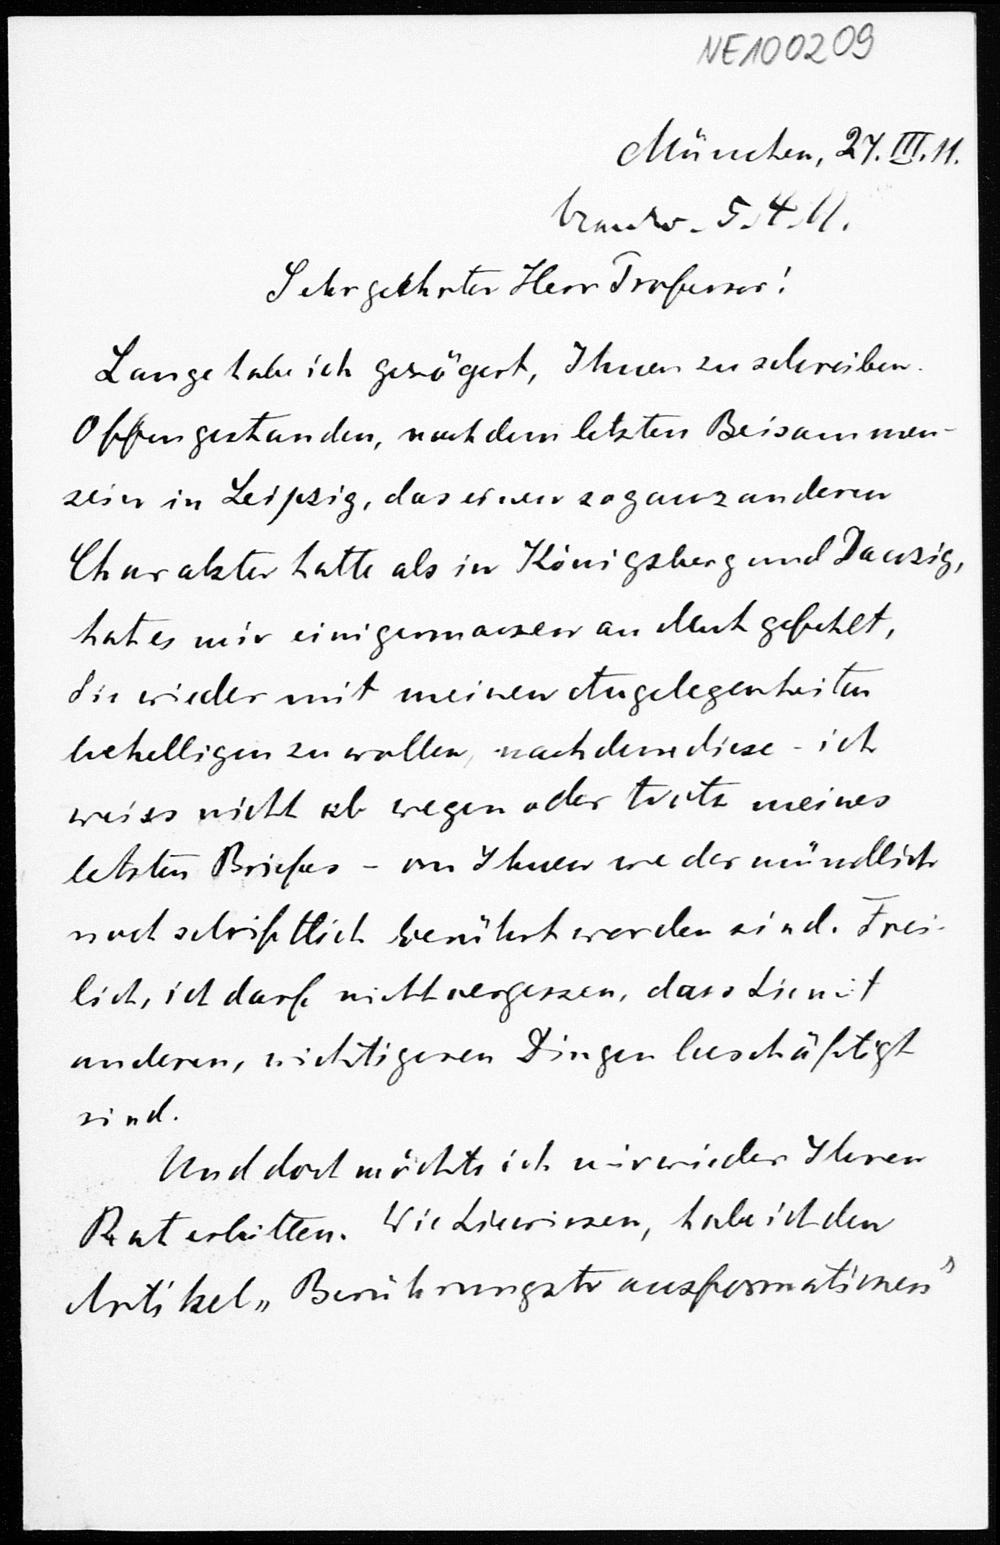 NE100209
München, 27. III. 11.
5.4.11.
Sehr geehrter Herr Professor!
Lange habe ich gezögert, Ihnen zu schreiben.
Offengestanden, nach dem letzten Beisammen-
sein in Leipzig, das einen so ganz anderen
Charakter hatte als in Königsberg und Danzig,
hat es mir einigermaszen an Mut gefehlt,
Sie wieder mit meinen Angelegenheiten
behelligen zu wollen, nachdem diese - ich
weiss nicht ob wegen oder trotz meines
letzten Briefes - von Ihnen weder mündlich
noch schriftlich berührt worden sind. Frei-
lich, ich darf nicht vergessen, dass Sie mit
anderen, wichtigeren Dingen beschäftigt
sind.
Und doch möchte ich mir wieder Ihren
Rat erbitten. Wie Sie wissen, habe ich den
Artikel „Berührungstransformationen"